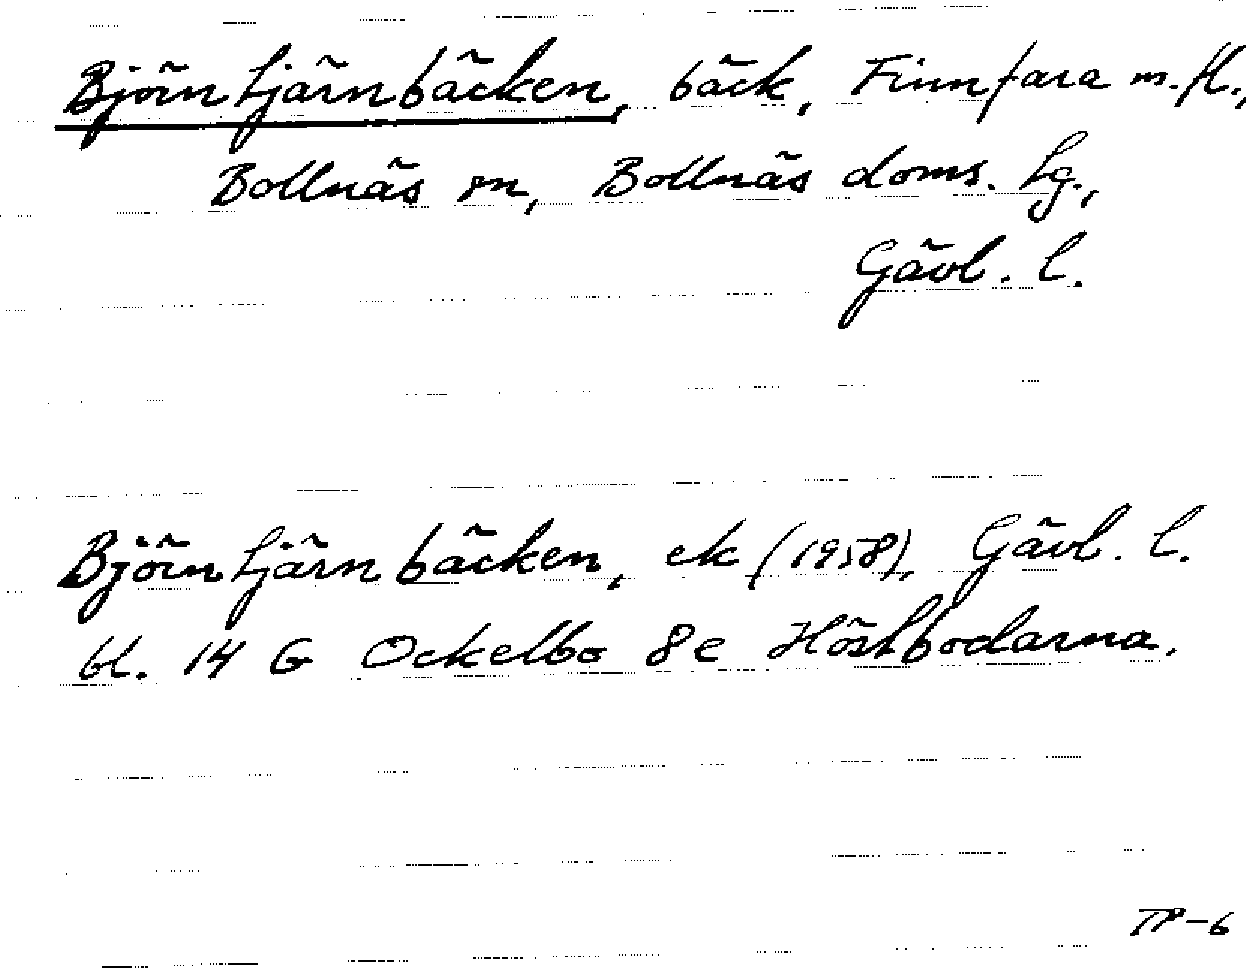 Björntjärnbäcken, bäck, Finnfara m.fl.,
Bollnäs sn, Bollnäs doms. tg.,
Gävl. l.
Björntjärnbäcken, ek (1958), Gävl. l.
bl. 14 G Ockelbo 8e Höstbodarna.
TP-6